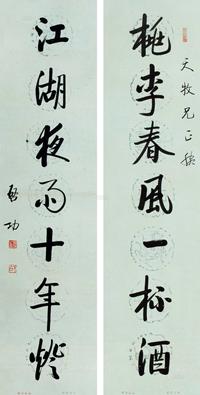 天牧兄正稿
桃李春风一杯酒
江湖夜雨十年灯
启功